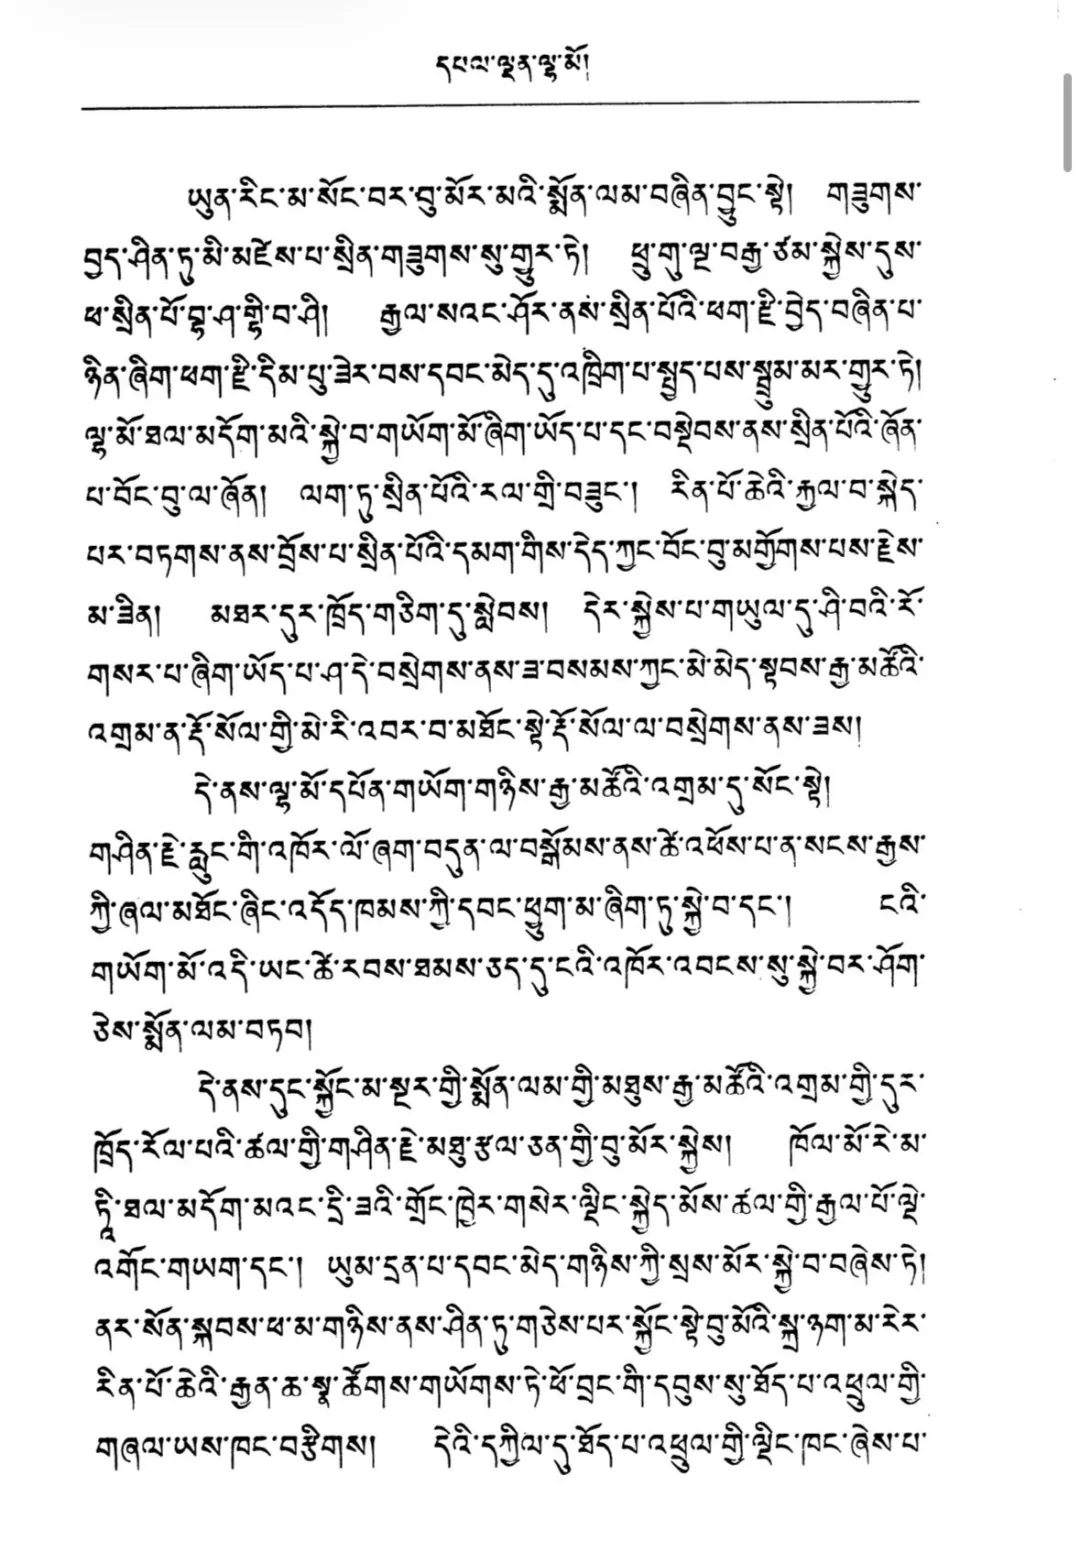 དཔལ་ལྡན་ལྷ་མོ།
ཡུན་རིང་མ་སོང་བར་བུ་མོར་མའི་སྨོན་ལམ་བཞིན་བྱུང་སྟེ། གཟུགས་
བྱད་ཤིན་ཏུ་མི་མཛེས་པ་སྲིན་གཟུགས་སུ་གྱུར་ཏེ། ཕྲུ་གུ་ལྔ་བརྒྱ་ཙམ་སྐྱེས་དུས་
ཕ་སྲིན་པོ་བྷ་ཤ་གྷི་བ་ཤི། རྒྱལ་སའང་ཤོར་ནས་སྲིན་པོའི་ཕག་རྫི་བྱེད་བཞིན་པ་
ཉིན་ཞིག་ཕག་རྫི་དིམ་པུ་ཟེར་བས་དབང་མེད་དུ་འཁྲིག་པ་སྤྱད་པས་སྦྲུམ་མར་གྱུར་ཏེ།
ལྷ་མོ་ཐལ་མདོག་མའི་སྐྱེ་བ་གཡོག་མོ་ཞིག་ཡོད་པ་དང་བསྡེབས་ནས་སྲིན་པོའི་ཞོན་
པ་བོང་བུ་ལ་ཞོན། ལག་ཏུ་སྲིན་པོའི་རལ་གྲི་བཟུང་། རིན་པོ་ཆེའི་རྐྱལ་བ་སྐེད་
པར་བཏགས་ནས་བྲོས་པ་སྲིན་པོའི་དམག་གིས་དེད་ཀྱང་བོང་བུ་མགྱོགས་པས་རྗེས་
མ་ཟིན། མཐར་དུར་ཁྲོད་གཅིག་དུ་སླེབས། དེར་སྐྱེས་པ་གཡུལ་དུ་ཤི་བའི་རོ་
གསར་པ་ཞིག་ཡོད་པ་ཤ་དེ་བསྲེགས་ནས་ཟ་བསམས་ཀྱང་མེ་མེད་སྟབས་རྒྱ་མཚོའི་
འགྲམ་ན་རྡོ་སོལ་གྱི་མེ་རི་འབར་བ་མཐོང་སྟེ་རྡོ་སོལ་ལ་བསྲེགས་ནས་ཟས།
དེ་ནས་ལྷ་མོ་དཔོན་གཡོག་གཉིས་རྒྱ་མཚོའི་འགྲམ་དུ་སོང་སྟེ།
གཤིན་རྗེ་རླུང་གི་འཁོར་ལོ་ཞག་བདུན་ལ་བསྒོམས་ནས་ཚེ་འཕོས་པ་ན་སངས་རྒྱས་
ཀྱི་ཞལ་མཐོང་ཞིང་འདོད་ཁམས་ཀྱི་དབང་ཕྱུག་མ་ཞིག་ཏུ་སྐྱེ་བ་དང་། ངའི་
གཡོག་མོ་འདི་ཡང་ཚེ་རབས་ཐམས་ཅད་དུ་ངའི་འཁོར་འབངས་སུ་སྐྱེ་བར་ཤོག་
ཅེས་སྨོན་ལམ་བཏབ།
དེ་ནས་དུང་སྐྱོང་མ་སྔར་གྱི་སྨོན་ལམ་གྱི་མཐུས་རྒྱ་མཚོའི་འགྲམ་གྱི་དུར་
ཁྲོད་རོལ་པའི་ཚལ་གྱི་གཤིན་རྗེ་མཐུ་རྩལ་ཅན་གྱི་བུ་མོར་སྐྱེས། ཁོལ་མོ་རེ་མ་
ཏཱི་ཐལ་མདོག་མའང་དྲི་ཟའི་གྲོང་ཁྱེར་གསེར་ལྡིང་སྐྱེད་མོས་ཚལ་གྱི་རྒྱལ་པོ་ལྡེ་
འགོང་གཡག་དང་། ཡུམ་དྲན་པ་དབང་མེད་གཉིས་ཀྱི་སྲས་མོར་སྐྱེ་བ་བཞེས་ཏེ།
ནར་སོན་སྐབས་ཕ་མ་གཉིས་ནས་ཤིན་ཏུ་གཅེས་པར་སྐྱོང་སྟེ་བུ་མོའི་སྐྲ་ཉག་མ་རེར་
རིན་པོ་ཆེའི་རྒྱན་ཆ་སྣ་ཚོགས་གཡོགས་ཏེ་ཕོ་བྲང་གི་དབུས་སུ་ཐོད་པ་འཕྲུལ་གྱི་
གཞལ་ཡས་ཁང་བརྩིགས། དེའི་དཀྱིལ་དུ་ཐོད་པ་འཕྲུལ་གྱི་ལྡིང་ཁང་ཞེས་པ་